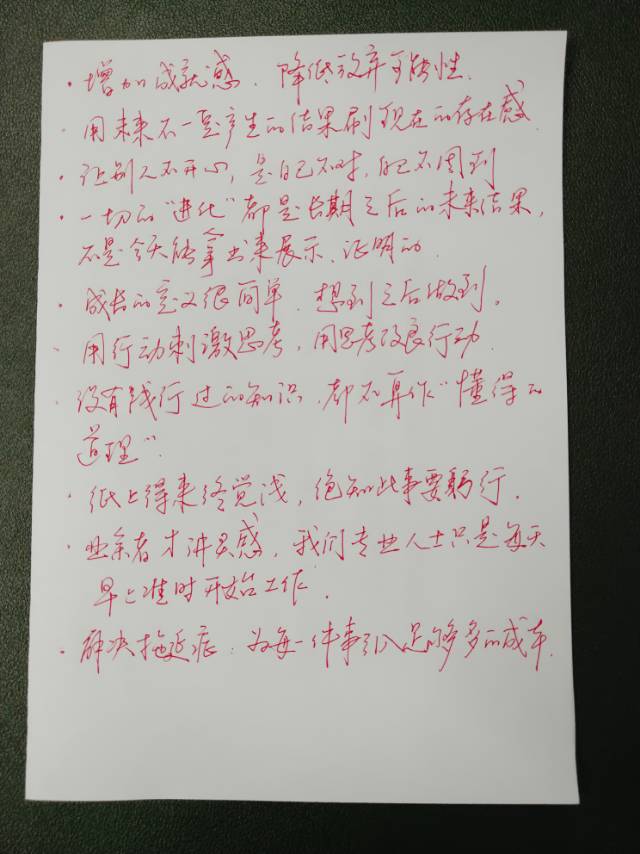 · 增加成就感、降低放弃可能性.
· 用未来不一定产生的结果刷现在的存在感.
· 让别人不开心, 是自己不对, 自己不周到
· 一切的"进化"都是长期之后的未来结果,
不是今天能拿出来展示、证明的.
· 成长的意义很简单. 想到之后做到.
· 用行动刺激思考, 用思考改良行动.
· 没有践行过的知识, 都不算作"懂得的
道理".
· 纸上得来终觉浅, 绝知此事要躬行.
· 业余者才讲灵感, 我们专业人士只是每天
早上准时开始工作.
· 解决拖延症: 为每一件事引入足够多的成本.